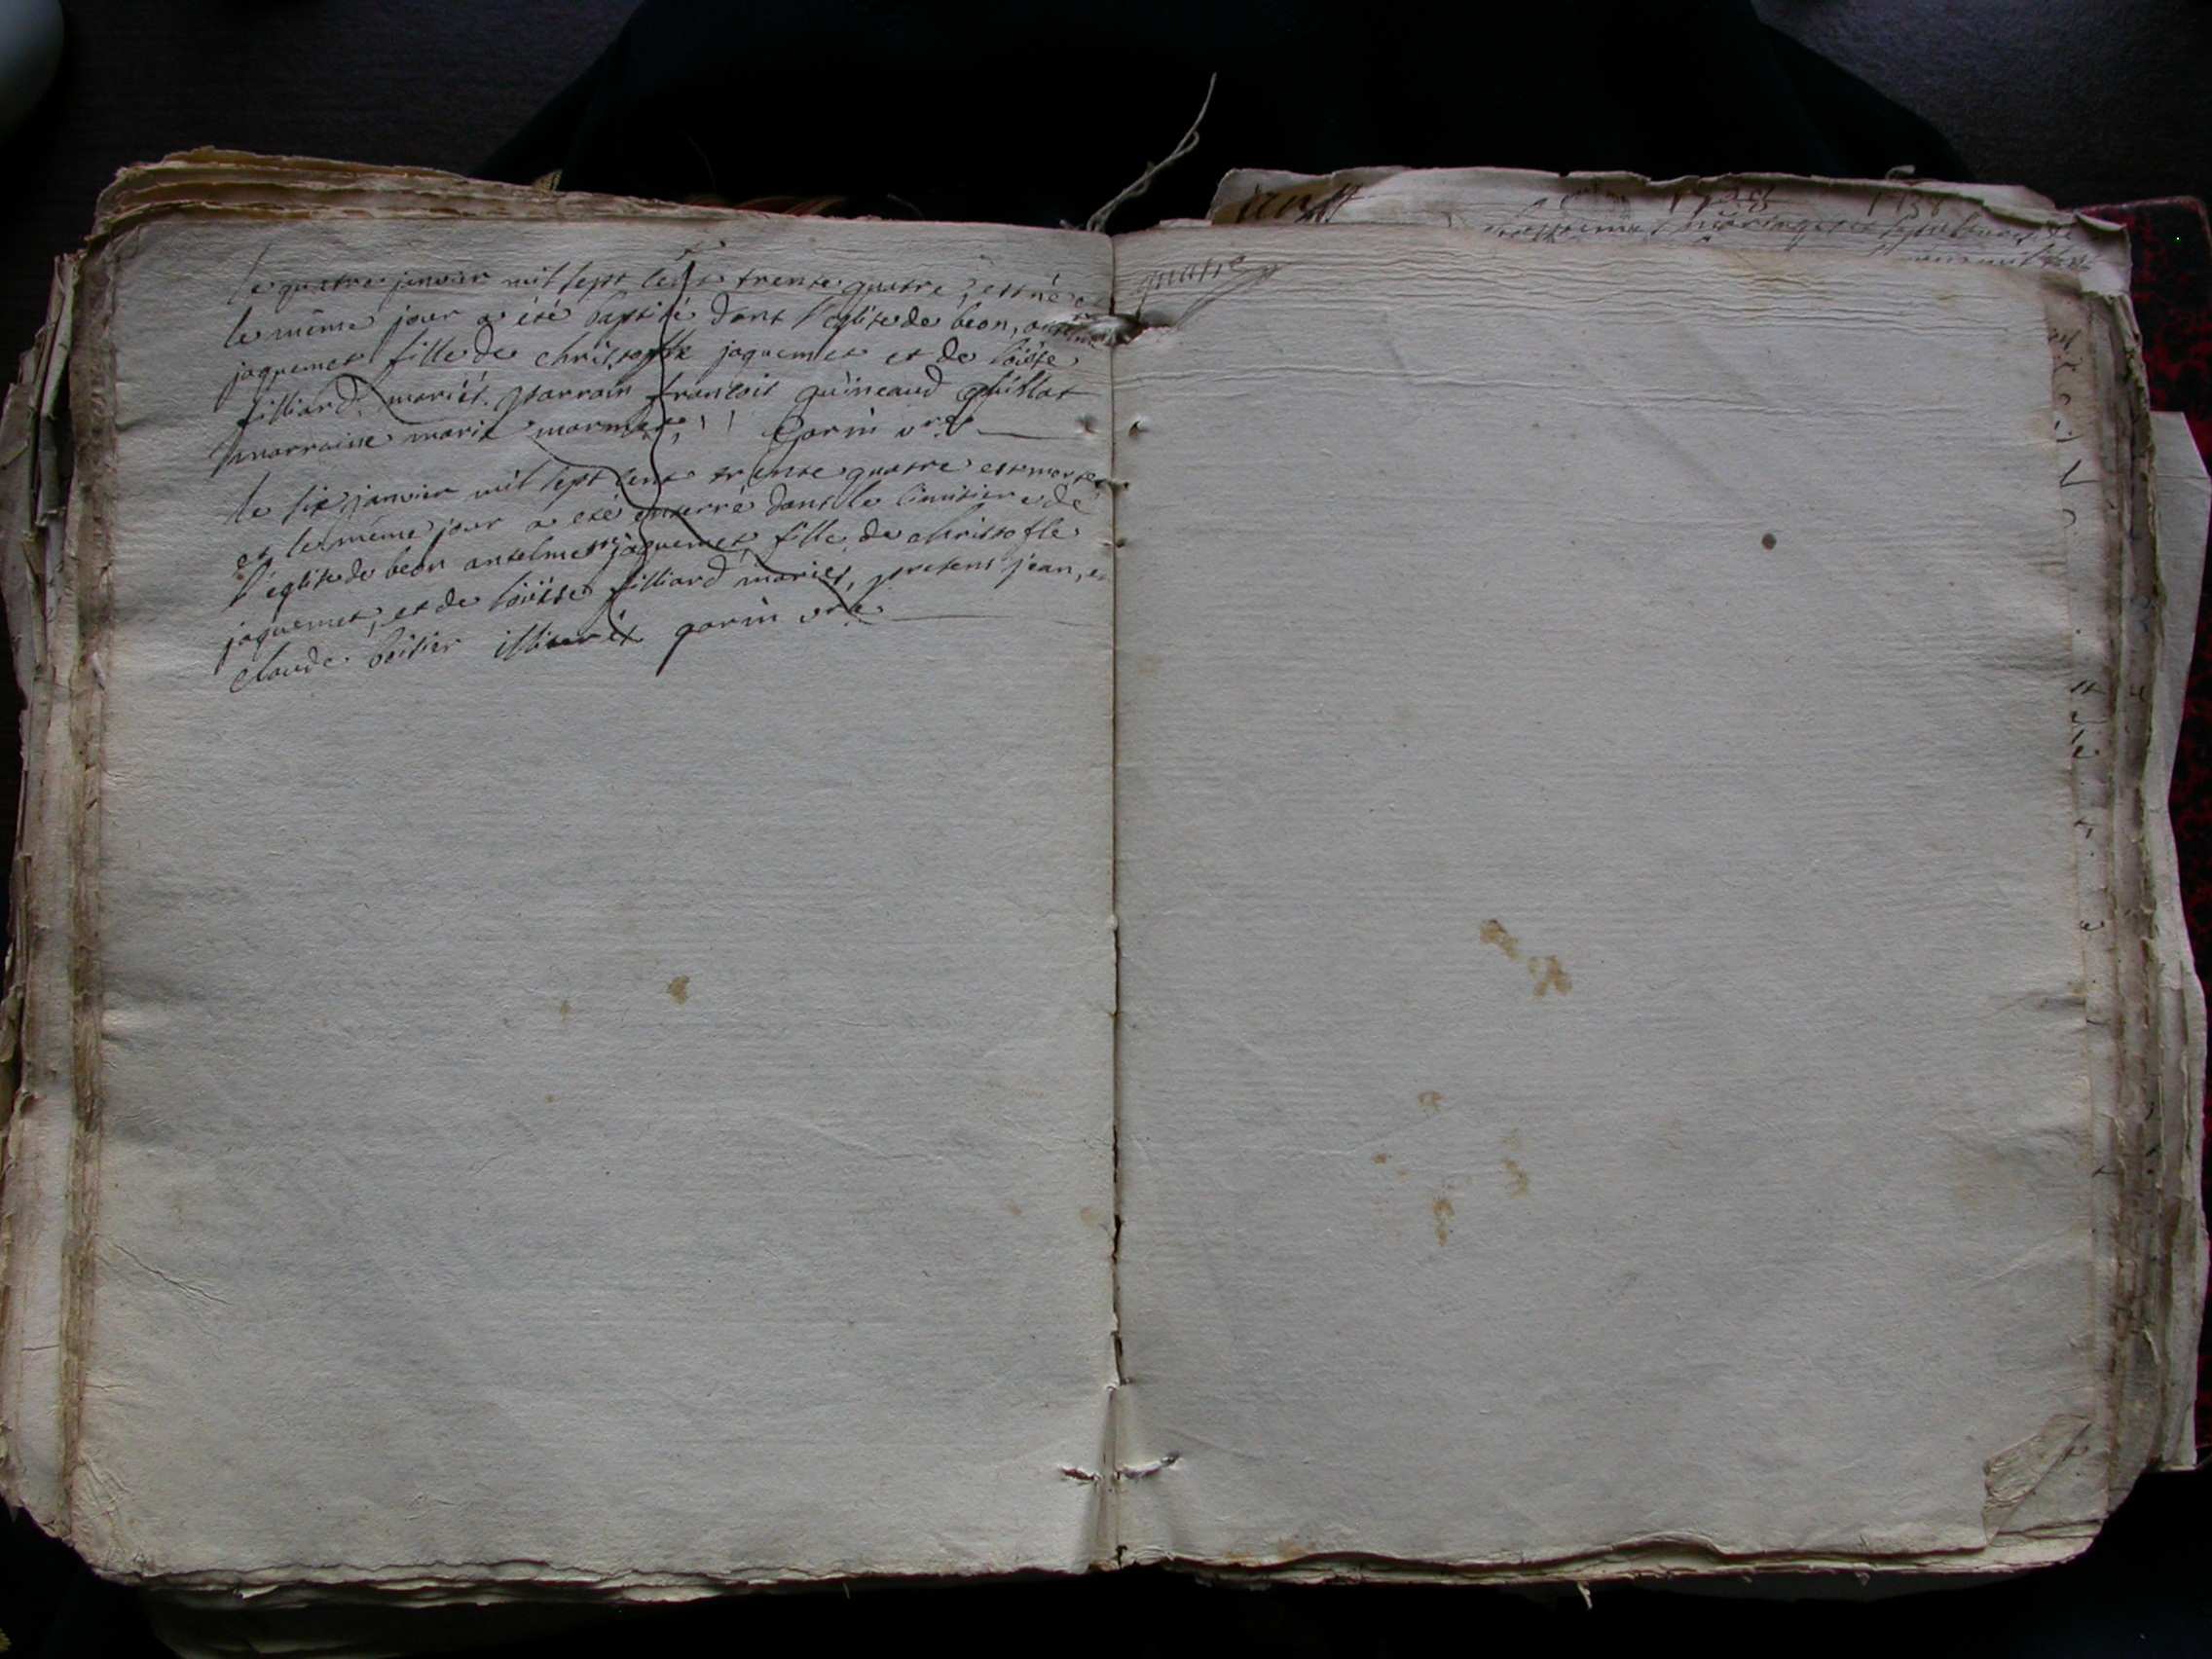 le quatre janvier mil sept cent trente quatre, est né et
le même jour a été baptisé dans l'eglise de beon,
jaquemet fille de christofle jaquemet et de loüise
filliard, mariés. parrain francois guineaud
marraine marie Garin vre
le six janvier mil sept cent trente quatre est morte
et le même jour a été enterré dans le cimitiere de
l'église de beon anselme jaquemet, fille de christofle
jaquemet, et de loüise filliard mariés, presens jean, et
claude illiterés garin vre
quatre
1738
mariages et sepultures de